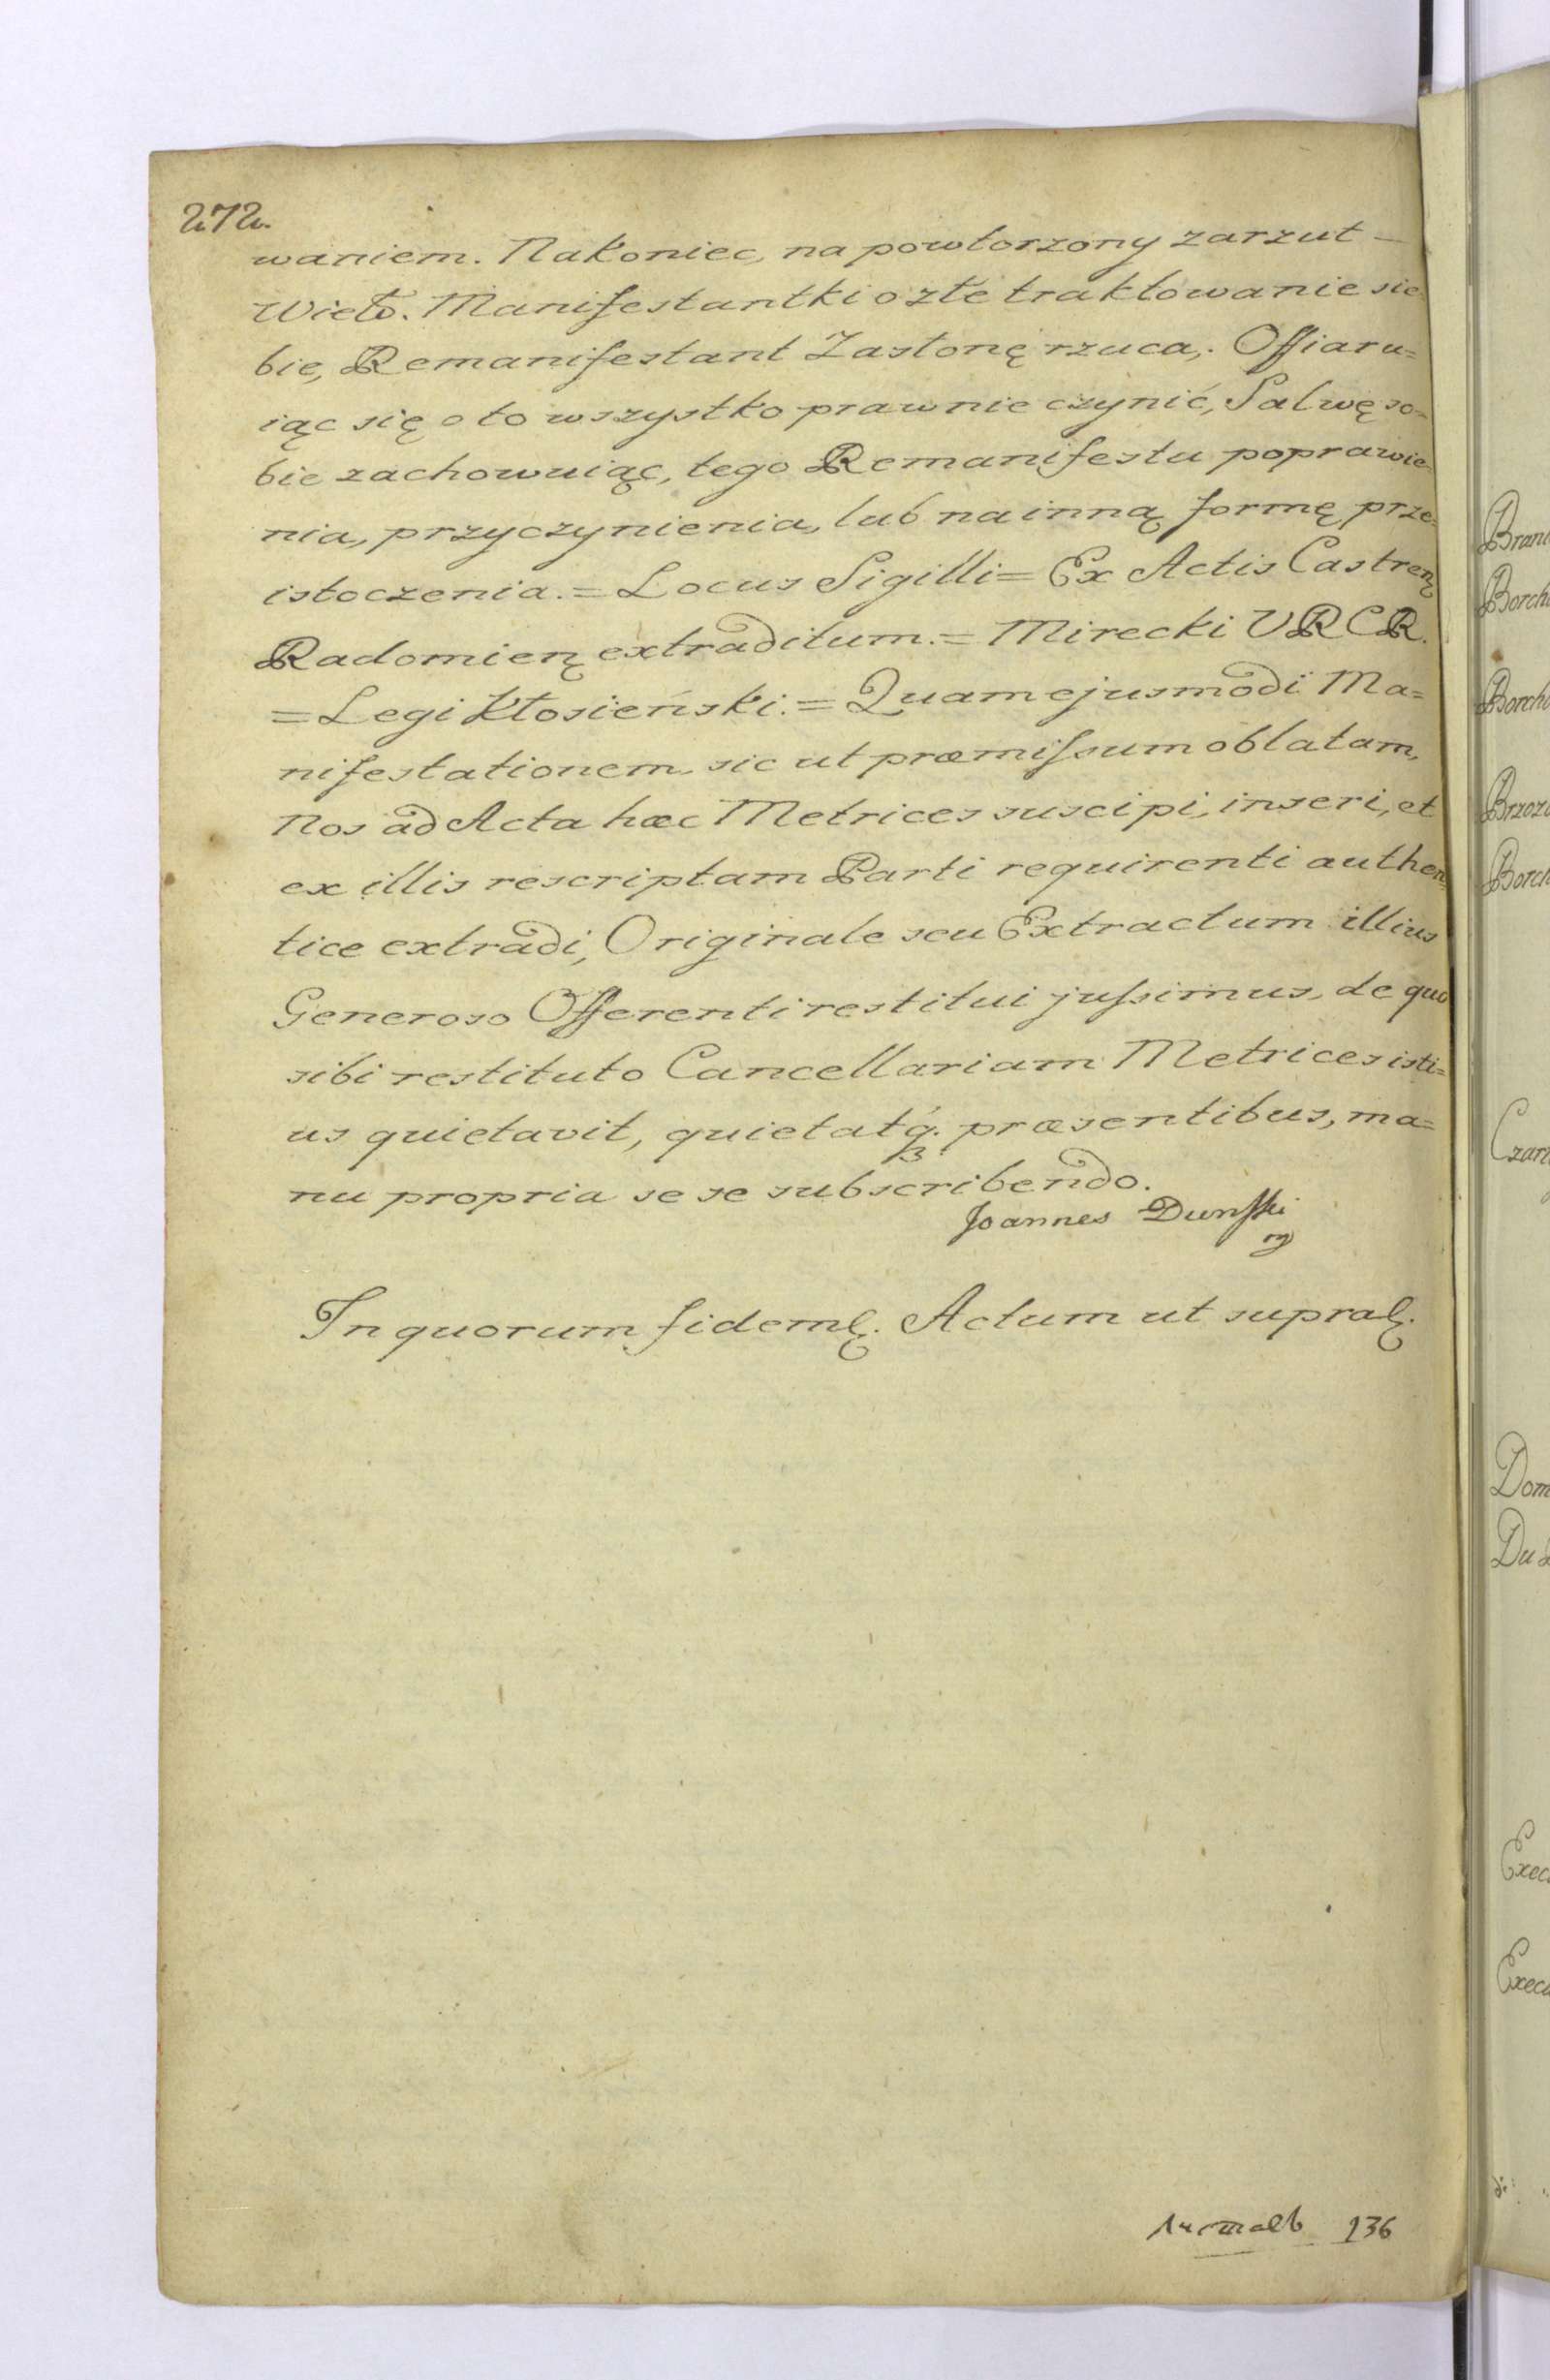 272.
waniem. Nakoniec, na powtorzony zarzut –
Wielo. Manifestantki o złe traktowanie sie=
bie, Remanifestant Zasłonę rzuca,. Offiaru=
iąc się o to wszystko prawnie czynić, Salwę so=
bie zachowuiąc, tego Remanifestu poprawie=
nia, przyczynienia, lub na inną formę prze=
istoczenia. = Locus Sigilli = Ex Actis Castreñ
Radomieñ extraditum. = Mirecki VRCR.
= Legi Kłosieński. = Quam ejusmodi Ma=
nifestationem, sic ut præmissum oblatam,
Nos ad Acta hæc Metrices suscipi, inseri, et
ex illis rescriptam Parti requirenti authen=
tice extradi, Originale seu Extractum illius
Generoso Offerenti restitui jussimus, de quo
sibi restituto Cancellariam Metrices isti=
us quietavit, quietatq́. præsentibus, ma=
nu propria se se subscribendo.
Joannes Dunski
mp
In quorum fidem &. Actum ut supra &.
136
Bran
Borch
Borch
Brzoz
Borch
Czar
Dom
Du
Exec
Exec